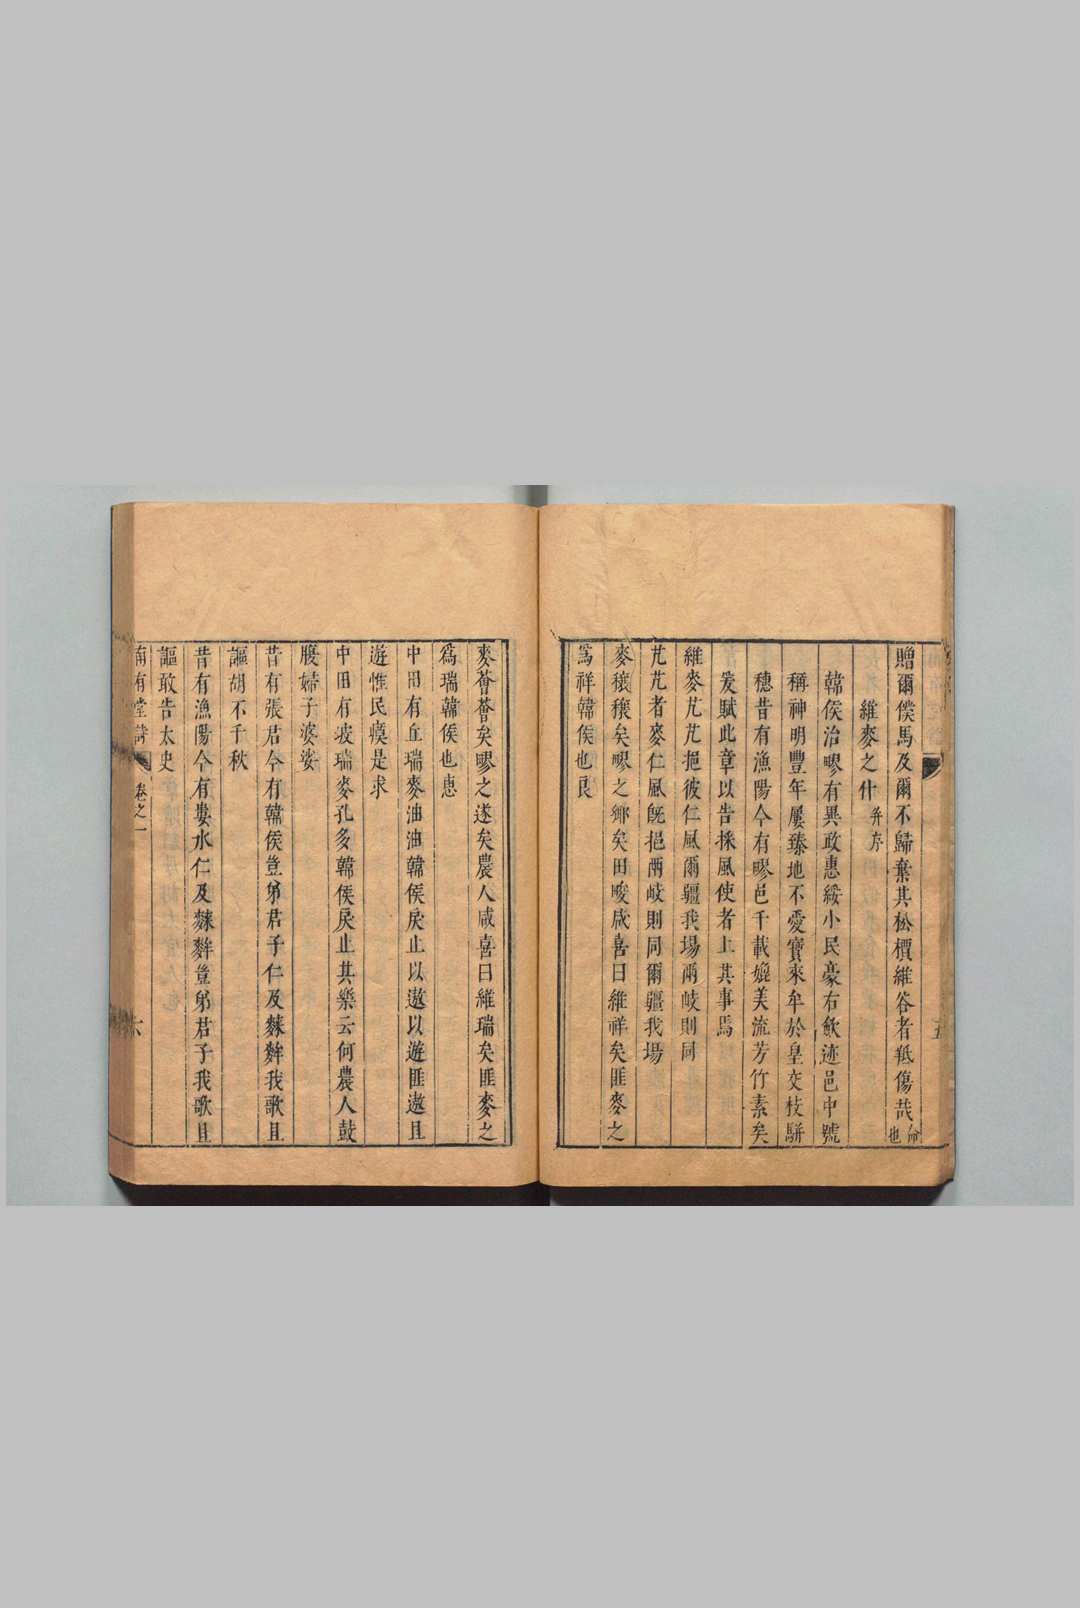 贈爾僕馬及爾不歸棄其松檟維咎者羝傷哉命也
維麥之什并序
韓侯治疁有異政惠綏小民豪右歛迹邑中號
稱神明豐年屢臻地不愛寶來牟於皇交枝駢
穗昔有漁陽今有疁邑千載媲美流芳竹素矣
爰賦此章以告採風使者上其事焉
維麥芃芃挹彼仁風爾疆我場兩岐則同
芃芃者麥仁風旣挹兩岐則同爾疆我場
麥穰穰矣疁之鄉矣田畯咸喜曰維祥矣匪麥之
爲祥韓侯也良
麥薈薈矣疁之遂矣農人咸喜曰維瑞矣匪麥之
爲瑞韓侯也惠
中田有丘瑞麥油油韓侯戾止以遨以遊匪遨且
遊惟民瘼是求
中田有坡瑞麥孔多韓侯戾止其樂云何農人鼓
腹婦子婆娑
昔有張君今有韓侯豈弟君子仁及麳麰我歌且
謳胡不千秋
昔有漁陽今有婁水仁及麳麰豈弟君子我歌且
謳敢告太史
南有堂詩 卷之一 六